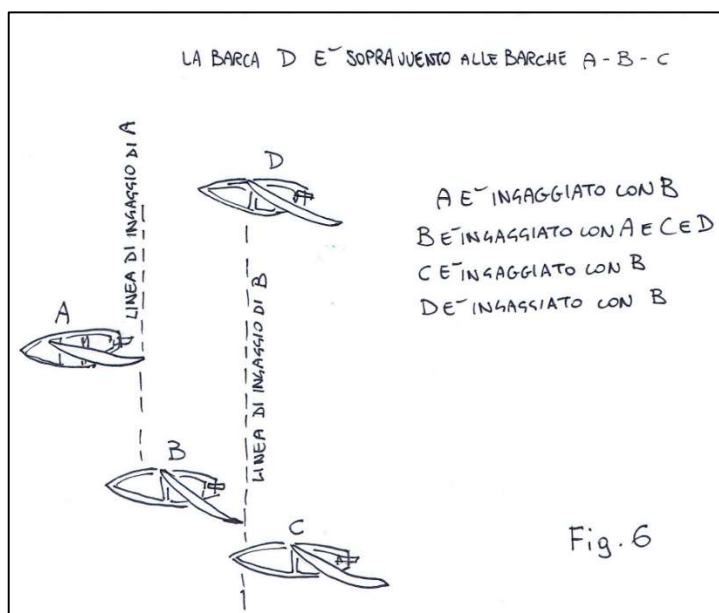 LA BARCA D E' SOPRAVVENTO ALLE BARCHE A-B-C
LINEA DI INGAGGIO DI A
D
A E' INGAGGIATO CON B
B E' INGAGGIATO CON A E C E D
C E' INGAGGIATO CON B
D E' INGAGGIATO CON B
A
LINEA DI INGAGGIO DI B
B
C
Fig. 6